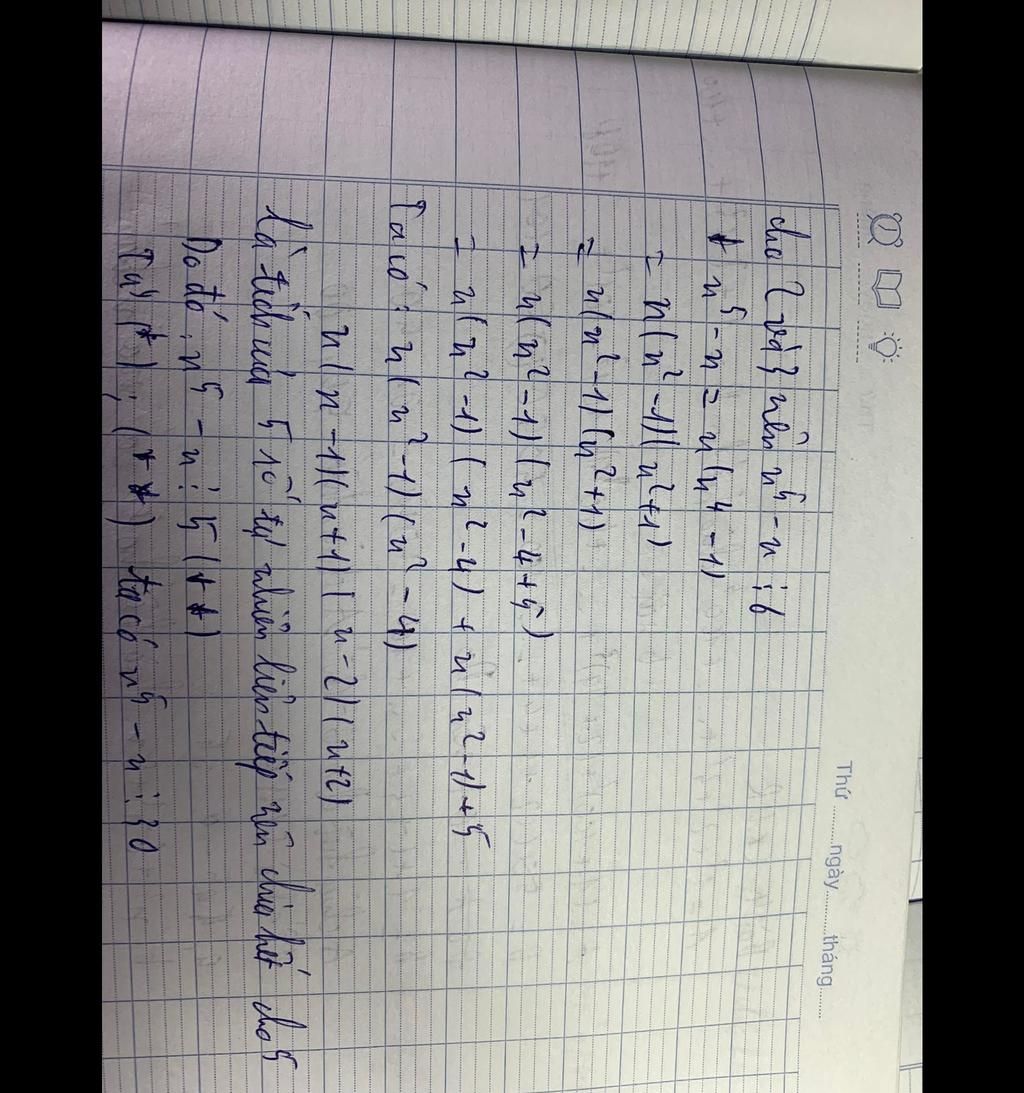 Thứ ........ngày........tháng......
cho 2 và 3 nên n⁵ - n ⋮ 6
* n⁵ - n = n(n⁴ - 1)
= n(n² - 1)(n² + 1)
= n(n² - 1)(n² + 1)
= n(n² - 1)(n² - 4 + 5)
= n(n² - 1)(n² - 4) + n(n² - 1) + 5
Ta có: n(n² - 1)(n² - 4)
n(n - 1)(n + 1)(n - 2)(n + 2)
là tích của 5 số tự nhiên liên tiếp nên chia hết cho 5
Do đó: n⁵ - n ⋮ 5 (**)
Từ (*); (**) ta có n⁵ - n ⋮ 30